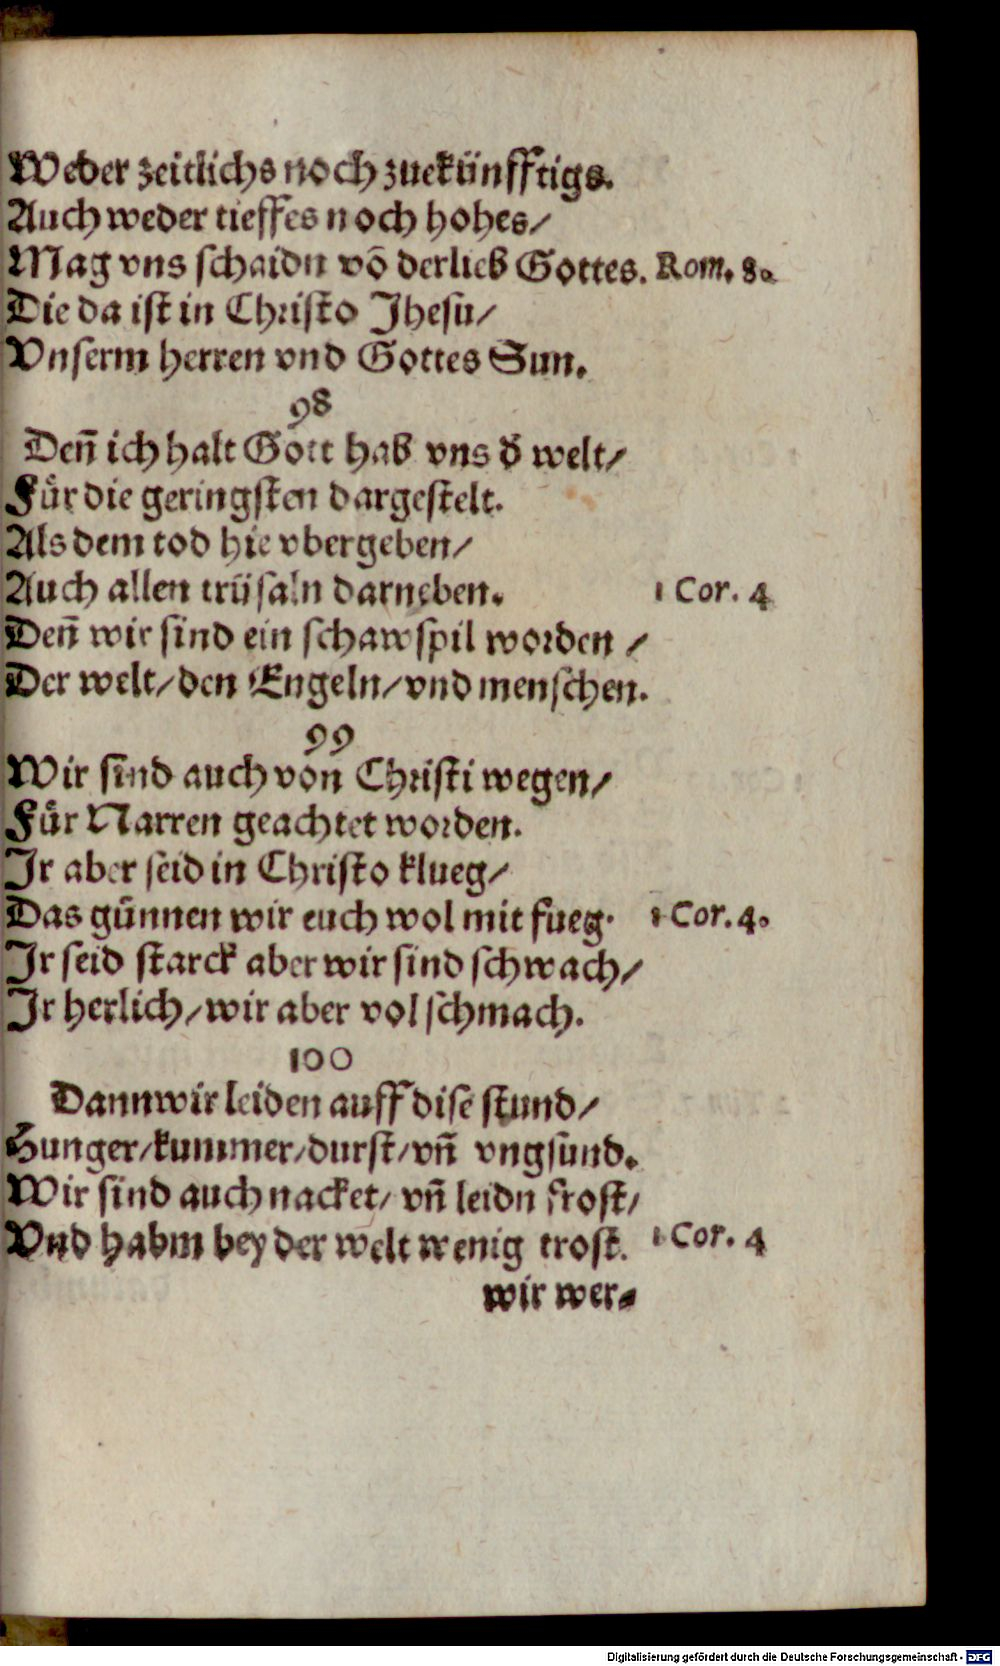 Weder zeitlichs noch zuekünfftigs.
Auch weder tieffes noch hohes/
Mag vns schaidn võ der lieb Gottes. Rom. 8.
Die da ist in Christo Jhesu/
Vnserm herren vnd Gottes Sun.
98
Deñ ich halt Gott hab vns d̕ welt/
Fůr die geringsten dargestelt.
Als dem tod hie vbergeben/
Auch allen trüsaln darneben. 1 Cor. 4
Deñ wir sind ein schawspil worden /
Der welt/ den Engeln/ vnd menschen.
99
Wir sind auch von Christi wegen/
Fůr Narren geachtet worden.
Jr aber seid in Christo klueg/
Das günnen wir euch wol mit fueg. 1 Cor. 4.
Jr seid starck aber wir sind schwach/
Jr herlich/ wir aber vol schmach.
100
Dann wir leiden auff dise stund/
Hunger/ kummer/ durst/ vñ vngsund.
Wir sind auch nacket/ vñ leidn frost/
Vnd habm bey der welt wenig trost. 1 Cor. 4
wir wer-
Digitalisierung gefördert durch die Deutsche Forschungsgemeinschaft - DFG